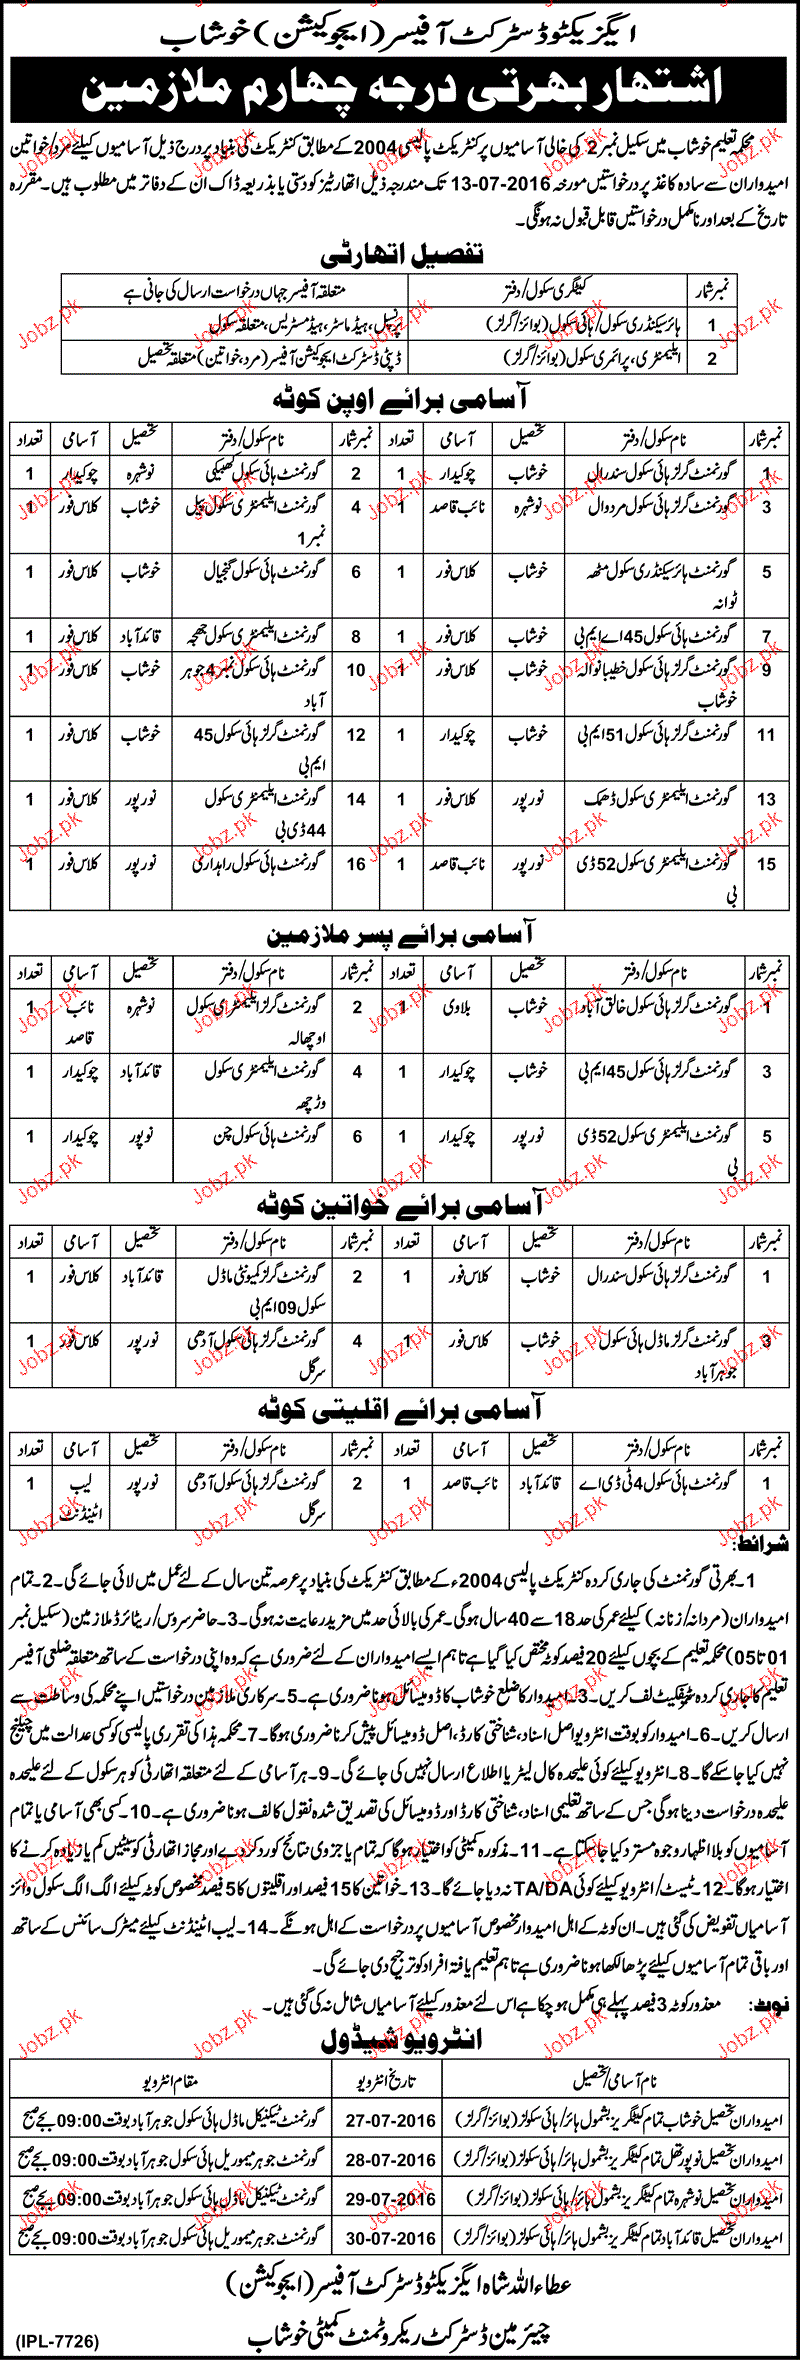 ایگزیکٹو ڈسٹرکٹ آفیسر (ایجوکیشن) خوشاب
اشتہار بھرتی درجہ چہارم ملازمین
محکمہ تعلیم خوشاب میں سکیل نمبر 2 کی خالی آسامیوں پر کنٹریکٹ پالیسی 2004 کے مطابق کنٹریکٹ کی بنیاد پر درج ذیل آسامیوں کیلئے مرد/خواتین
امیدواران سے سادہ کاغذ پر درخواستیں مورخہ 13-07-2016 تک مندرجہ ذیل اتھارٹیز کو دستی یا بذریعہ ڈاک ان کے دفاتر میں مطلوب ہیں۔ مقررہ
تاریخ کے بعد اور نامکمل درخواستیں قابل قبول نہ ہونگی۔
تفصیل اتھارٹی
نمبر شمار کیٹگری سکول/دفتر متعلقہ آفیسر جہاں درخواست ارسال کی جانی ہے
1 ہائر سیکنڈری سکول/ہائی سکول (بوائز/گرلز) پرنسپل، ہیڈ ماسٹر، ہیڈ مسٹریس، متعلقہ سکول
2 ایلیمنٹری، پرائمری سکول (بوائز/گرلز) ڈپٹی ڈسٹرکٹ ایجوکیشن آفیسر (مرد، خواتین) متعلقہ تحصیل
آسامی برائے اوپن کوٹہ
نمبر شمار نام سکول/دفتر تحصیل آسامی تعداد نمبر شمار نام سکول/دفتر تحصیل آسامی تعداد
1 گورنمنٹ گرلز ہائی سکول سندرال خوشاب چوکیدار 1 2 گورنمنٹ ہائی سکول کھبیکی نوشہرہ چوکیدار 1
3 گورنمنٹ گرلز ہائی سکول مردوال نوشہرہ نائب قاصد 1 4 گورنمنٹ ایلیمنٹری سکول پیل نمبر 1 خوشاب کلاس فور 1
5 گورنمنٹ ہائر سیکنڈری سکول مٹھہ ٹوانہ خوشاب کلاس فور 1 6 گورنمنٹ ہائی سکول گنجیال خوشاب کلاس فور 1
7 گورنمنٹ ہائی سکول 45 اے ایم بی خوشاب کلاس فور 1 8 گورنمنٹ ایلیمنٹری سکول قائدآباد کلاس فور 1
9 گورنمنٹ گرلز ہائی سکول خطیبانوالہ خوشاب خوشاب کلاس فور 1 10 گورنمنٹ ہائی سکول نمبر 4 جوہر آباد خوشاب کلاس فور 1
11 گورنمنٹ گرلز ہائی سکول 51 ایم بی خوشاب چوکیدار 1 12 گورنمنٹ گرلز ہائی سکول 45 ایم بی خوشاب کلاس فور 1
13 گورنمنٹ ایلیمنٹری سکول ڈھمک نورپور کلاس فور 1 14 گورنمنٹ ایلیمنٹری سکول 44 ڈی بی نورپور کلاس فور 1
15 گورنمنٹ ایلیمنٹری سکول 52 ڈی بی نورپور نائب قاصد 1 16 گورنمنٹ ہائی سکول راہداری نورپور کلاس فور 1
آسامی برائے پسر ملازمین
نمبر شمار نام سکول/دفتر تحصیل آسامی تعداد نمبر شمار نام سکول/دفتر تحصیل آسامی تعداد
1 گورنمنٹ گرلز ہائی سکول خالق آباد خوشاب بلاوی 1 2 گورنمنٹ گرلز ایلیمنٹری سکول اوچھالہ نوشہرہ نائب قاصد 1
3 گورنمنٹ گرلز ہائی سکول 45 ایم بی خوشاب چوکیدار 1 4 گورنمنٹ ایلیمنٹری سکول وڑچھہ قائدآباد چوکیدار 1
5 گورنمنٹ ایلیمنٹری سکول 52 ڈی بی نورپور چوکیدار 1 6 گورنمنٹ ہائی سکول چن نوپور چوکیدار 1
آسامی برائے خواتین کوٹہ
نمبر شمار نام سکول/دفتر تحصیل آسامی تعداد نمبر شمار نام سکول/دفتر تحصیل آسامی تعداد
1 گورنمنٹ گرلز ہائی سکول سندرال خوشاب کلاس فور 1 2 گورنمنٹ گرلز کمیونٹی ماڈل سکول 09 ایم بی قائدآباد کلاس فور 1
3 گورنمنٹ گرلز ماڈل ہائی سکول جوہرآباد خوشاب کلاس فور 1 4 گورنمنٹ گرلز ہائی سکول آدھی سرگل نورپور کلاس فور 1
آسامی برائے اقلیتی کوٹہ
نمبر شمار نام سکول/دفتر تحصیل آسامی تعداد نمبر شمار نام سکول/دفتر تحصیل آسامی تعداد
1 گورنمنٹ ہائی سکول 4 ٹی ڈی اے قائدآباد نائب قاصد 1 2 گورنمنٹ گرلز ہائی سکول آدھی سرگل نورپور لیب اٹینڈنٹ 1
شرائط:
1۔ بھرتی گورنمنٹ کی جاری کردہ کنٹریکٹ پالیسی 2004ء کے مطابق کنٹریکٹ کی بنیاد پر عرصہ تین سال کے لئے عمل میں لائی جائے گی۔ 2۔ تمام
امیدواران (مردانہ/زنانہ) کیلئے عمر کی حد 18 سے 40 سال ہوگی۔ عمر کی بالائی حد میں مزید رعایت نہ ہوگی۔ 3۔ حاضر سروس/ریٹائرڈ ملازمین (سکیل نمبر
01 تا 05) محکمہ تعلیم کے بچوں کیلئے 20 فیصد کوٹہ مختص کیا گیا ہے تاہم ایسے امیدواران کے لئے ضروری ہے کہ وہ اپنی درخواست کے ساتھ متعلقہ ضلعی آفیسر
تعلیم کا جاری کردہ سرٹیفکیٹ لف کریں۔ 3۔ امیدوار کا ضلع خوشاب کا ڈومیسائل ہونا ضروری ہے۔ 5۔ سرکاری ملازمین درخواستیں اپنے محکمہ کی وساطت سے
ارسال کریں۔ 6۔ امیدوار کو بوقت انٹرویو اصل اسناد، شناختی کارڈ، اصل ڈومیسائل پیش کرنا ضروری ہوگا۔ 7۔ محکمہ ہذا کی تقرری پالیسی کو کسی عدالت میں چیلنج
نہیں کیا جاسکے گا۔ 8۔ انٹرویو کیلئے کوئی علیحدہ کال لیٹر یا اطلاع ارسال نہیں کی جائے گی۔ 9۔ ہر آسامی کے لئے متعلقہ اتھارٹی کو ہر سکول کے لئے علیحدہ
علیحدہ درخواست دینا ہوگی جس کے ساتھ تعلیمی اسناد، شناختی کارڈ اور ڈومیسائل کی تصدیق شدہ نقول کا لف ہونا ضروری ہے۔ 10۔ کسی بھی آسامی یا تمام
آسامیوں کو بلا اظہار وجوہ مسترد کیا جاسکتا ہے۔ 11۔ مذکورہ کمیٹی کو اختیار ہوگا کہ تمام یا جزوی نتائج کو رد کردے اور مجاز اتھارٹی کو سیٹیں کم یا زیادہ کرنے کا
اختیار ہوگا۔ 12۔ ٹیسٹ/انٹرویو کیلئے کوئی TA/DA نہ دیا جائے گا۔ 13۔ خواتین کا 15 فیصد اور اقلیتوں کا 5 فیصد مخصوص کوٹہ کیلئے الگ الگ سکول وائز
آسامیاں تفویض کی گئی ہیں۔ ان کوٹہ کے اہل امیدوار مخصوص آسامیوں پر درخواست کے اہل ہونگے۔ 14۔ لیب اٹینڈنٹ کیلئے میٹرک سائنس کے ساتھ
اور باقی تمام آسامیوں کیلئے پڑھا لکھا ہونا ضروری ہے تاہم تعلیم یافتہ افراد کو ترجیح دی جائے گی۔
نوٹ: معذور کوٹہ 3 فیصد پہلے ہی مکمل ہوچکا ہے اس لئے معذور کیلئے آسامیاں شامل نہ کی گئی ہیں۔
انٹرویو شیڈول
نام آسامی/تحصیل تاریخ انٹرویو مقام انٹرویو
امیدواران تحصیل خوشاب تمام کیٹگریز بشمول ہائر/ہائی سکولز (بوائز/گرلز) 27-07-2016 گورنمنٹ ٹیکنیکل ماڈل ہائی سکول جوہرآباد بوقت 09:00 بجے صبح
امیدواران تحصیل نورپور تھل تمام کیٹگریز بشمول ہائر/ہائی سکولز (بوائز/گرلز) 28-07-2016 گورنمنٹ جوہر میموریل ہائی سکول جوہرآباد بوقت 09:00 بجے صبح
امیدواران تحصیل نوشہرہ تمام کیٹگریز بشمول ہائر/ہائی سکولز (بوائز/گرلز) 29-07-2016 گورنمنٹ ٹیکنیکل ماڈل ہائی سکول جوہرآباد بوقت 09:00 بجے صبح
امیدواران تحصیل قائدآباد تمام کیٹگریز بشمول ہائر/ہائی سکولز (بوائز/گرلز) 30-07-2016 گورنمنٹ جوہر میموریل ہائی سکول جوہرآباد بوقت 09:00 بجے صبح
عطاء اللہ شاہ ایگزیکٹو ڈسٹرکٹ آفیسر (ایجوکیشن)
چیئرمین ڈسٹرکٹ ریکروٹمنٹ کمیٹی خوشاب
(IPL-7726)
Jobz.pk